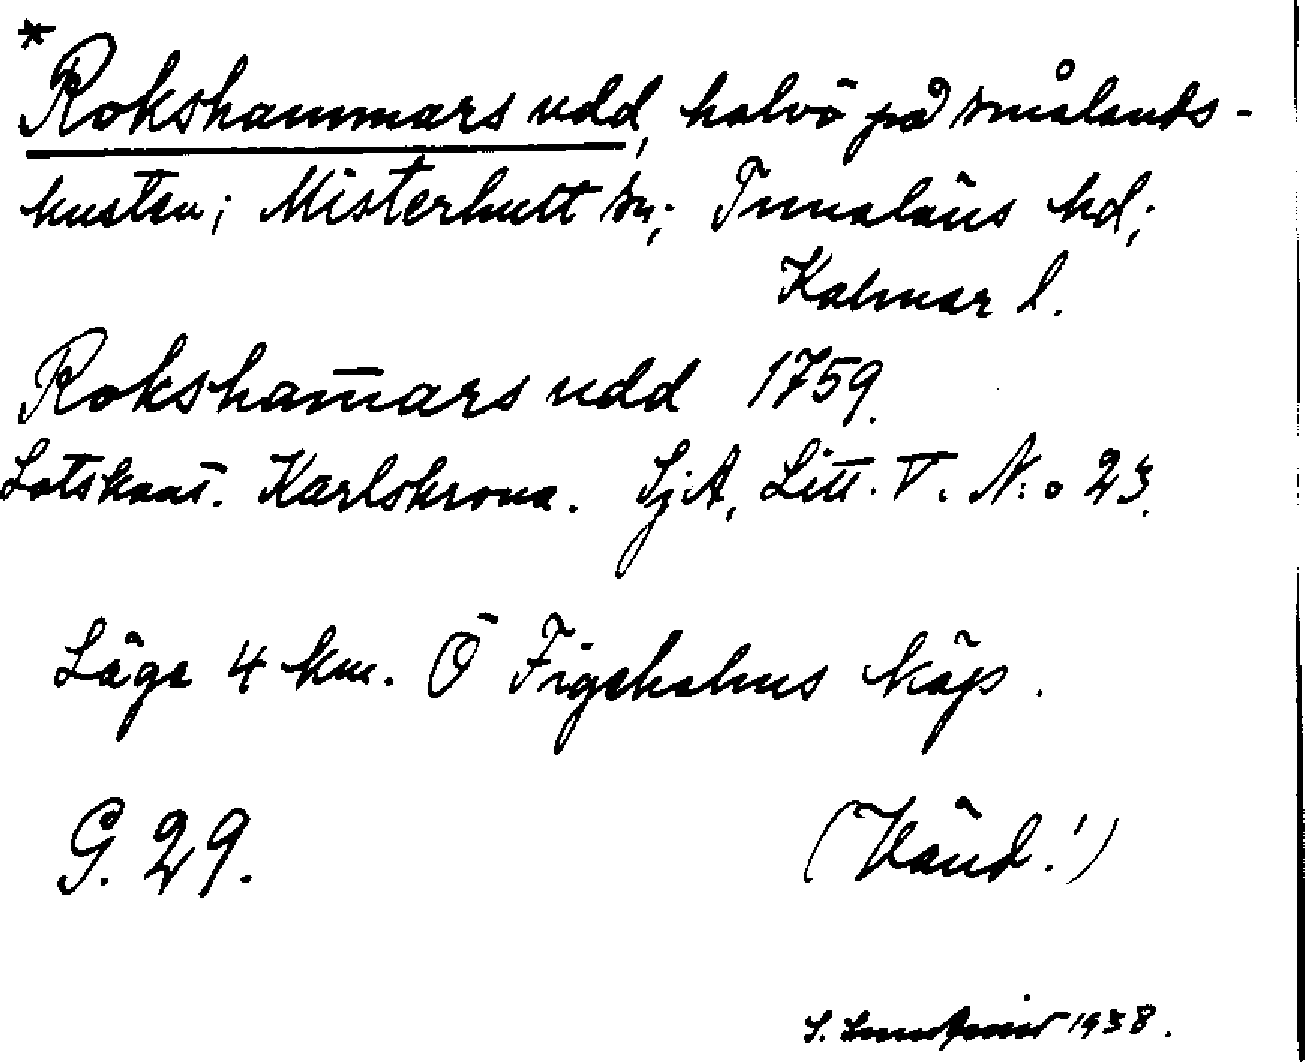 *
Rokshammars udd, halvö på smålands-
kusten; Misterhult sn; Tunaläns hd;
Kalmar l.
Roksham̄ars udd 1759.
Lotskont. Karlskrona. SjA, Litt. V. N:o 23.
Läge 4 km. Ö Figeholms köp.
G. 29.
(Vänd!)
S. 1938.